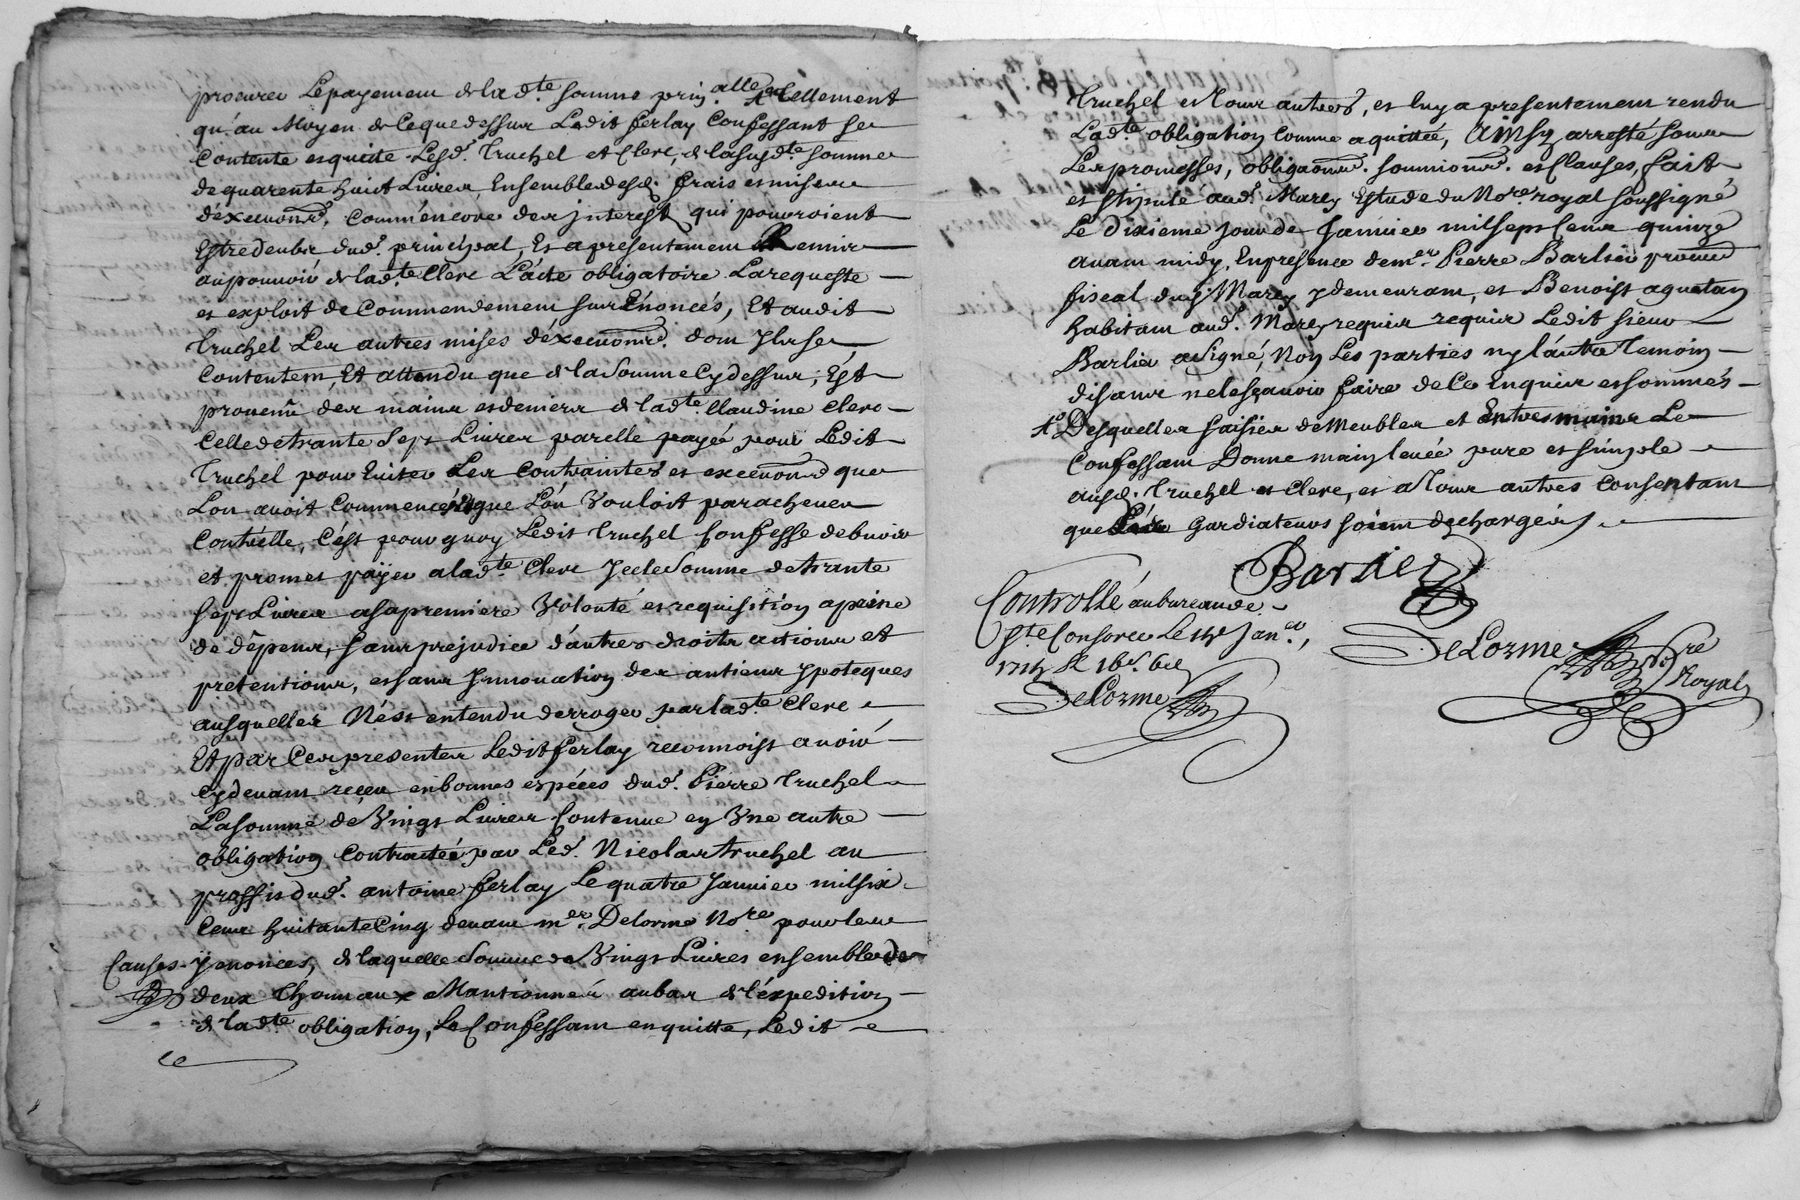 procurer Lepayement de lad.te somme prin.alle A° tellement
qu'au Moyen de Ceque dessus Ledit ferlay Confessant se
Contente et quitte Lesd. Truchel et Clerc, de lasusd.te somme
de quarente huit Livres Ensemble desd. frais et mises
déxecuõns, Comm'encore des jnterest qui pouvroient
Estre deubz dud. principal, Et apresentement Remis
au pouvoir de lad.te Clerc L'acte obligatoire Larequeste
et exploit de Commendement sus Enoncés, Et audit
Truchel Les autres mises d'éxecuõns. dont Jls se
Contentent, Et attendu que de lasomme Cydessus, Est
provenu des mains et deniers de lad.te Claudine Clerc
Celle de trante Sept Livres par elle payée pour Ledit
Truchel pour Eviter Les Contraintes et execuõns que
Lon avoit Commencé et que Lon Vouloit parachever
Contr'elle, C'ést pourquoy Ledit Truchel Confesse debvoir
et promet päyer alad.te Clerc Jcelle Somme de trante
Sept Livres asapremiere Volonté et requisition apeine
de dépens, sans prejudice d'autres droits actions et
pretentions, et sans Jnnovation des antiens Jpoteques
ausquelles N'ést entendu derroger par lad.te Clerc
Et par Ces presentes Ledit ferlay reconnoist avoir
Cydevant reçeu en bonnes espéces dud. Piérre Truchel
Lasomme de Vingt Livres Contenue en Vne autre
obligation Contractée par Led. Nicolas truchel au
proffit dud. antoine ferlay Le quatre Janvier mil six
Cent huitante Cinq devant m.er Delorme No.re pour les
Causes y enonces, de laquelle Somme de Vingt Livres ensemble de
deux Chonnaux Mantionnés aubas de l'éxpedition
de lad.te obligation, Le Confessant en quitte, Ledit
Truchel et tous autres, et luy a presentement rendu
Lad.te obligation Comme aquittée, Ainsy arresté sous
Les promesses, obligaõns. soumions. et Clauses, fait
et stipulé aud. Marcy Estude du No.re royal soussigné
Le Dixieme jour de Janvier mil sept Cent quinze
avant midy, En présence de m.er Pierre Barlier procureur
fiscal dud. Marcy y demeurant, et Benoist aquetan
habitant aud. Marcy requis requis Ledit sieur
Barlier asigné, Non Les parties ny l'autre temoin
disant ne lesçavoir faire de Ce Enquis et sommés
A° Desquelles saisies de Meubles et Entres mains Le
Confessant Donne mainlevée pure et simple
ausd. Truchel et Clerc, et atous autres Consentant
que Les Gardiateurs soient dechargés
Barlier
Controllé au bureau de
S.te Consorce Le 14 Jan.er
Delorme
DeLorme No.re
Royal